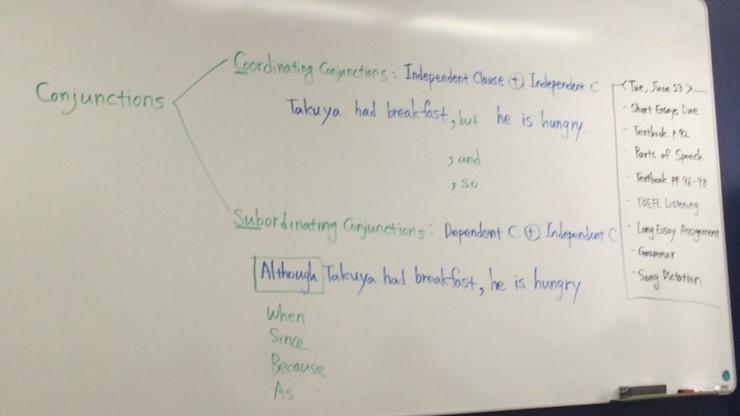 Conjunctions
Coordinating Conjunctions : Independent Clause + Independent C.
Takuya had breakfast, but he is hungry.
, and
, so
Subordinating Conjunctions : Dependent C. + Independent C
Although Takuya had breakfast, he is hungry.
When
Since
Because
As
<Tue, June 23>
- Short Essays Due
- Textbook p.92
- Parts of Speech
- Textbook pp. 96-98
- TOEFL Listening
- Long Essay Assignment
- Grammar
- Song Dictation